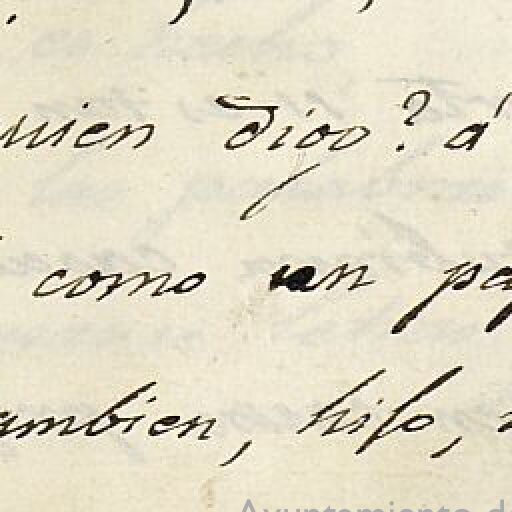 uien digo? á
como un pa
ambien, hijo,
Ayuntamiento de